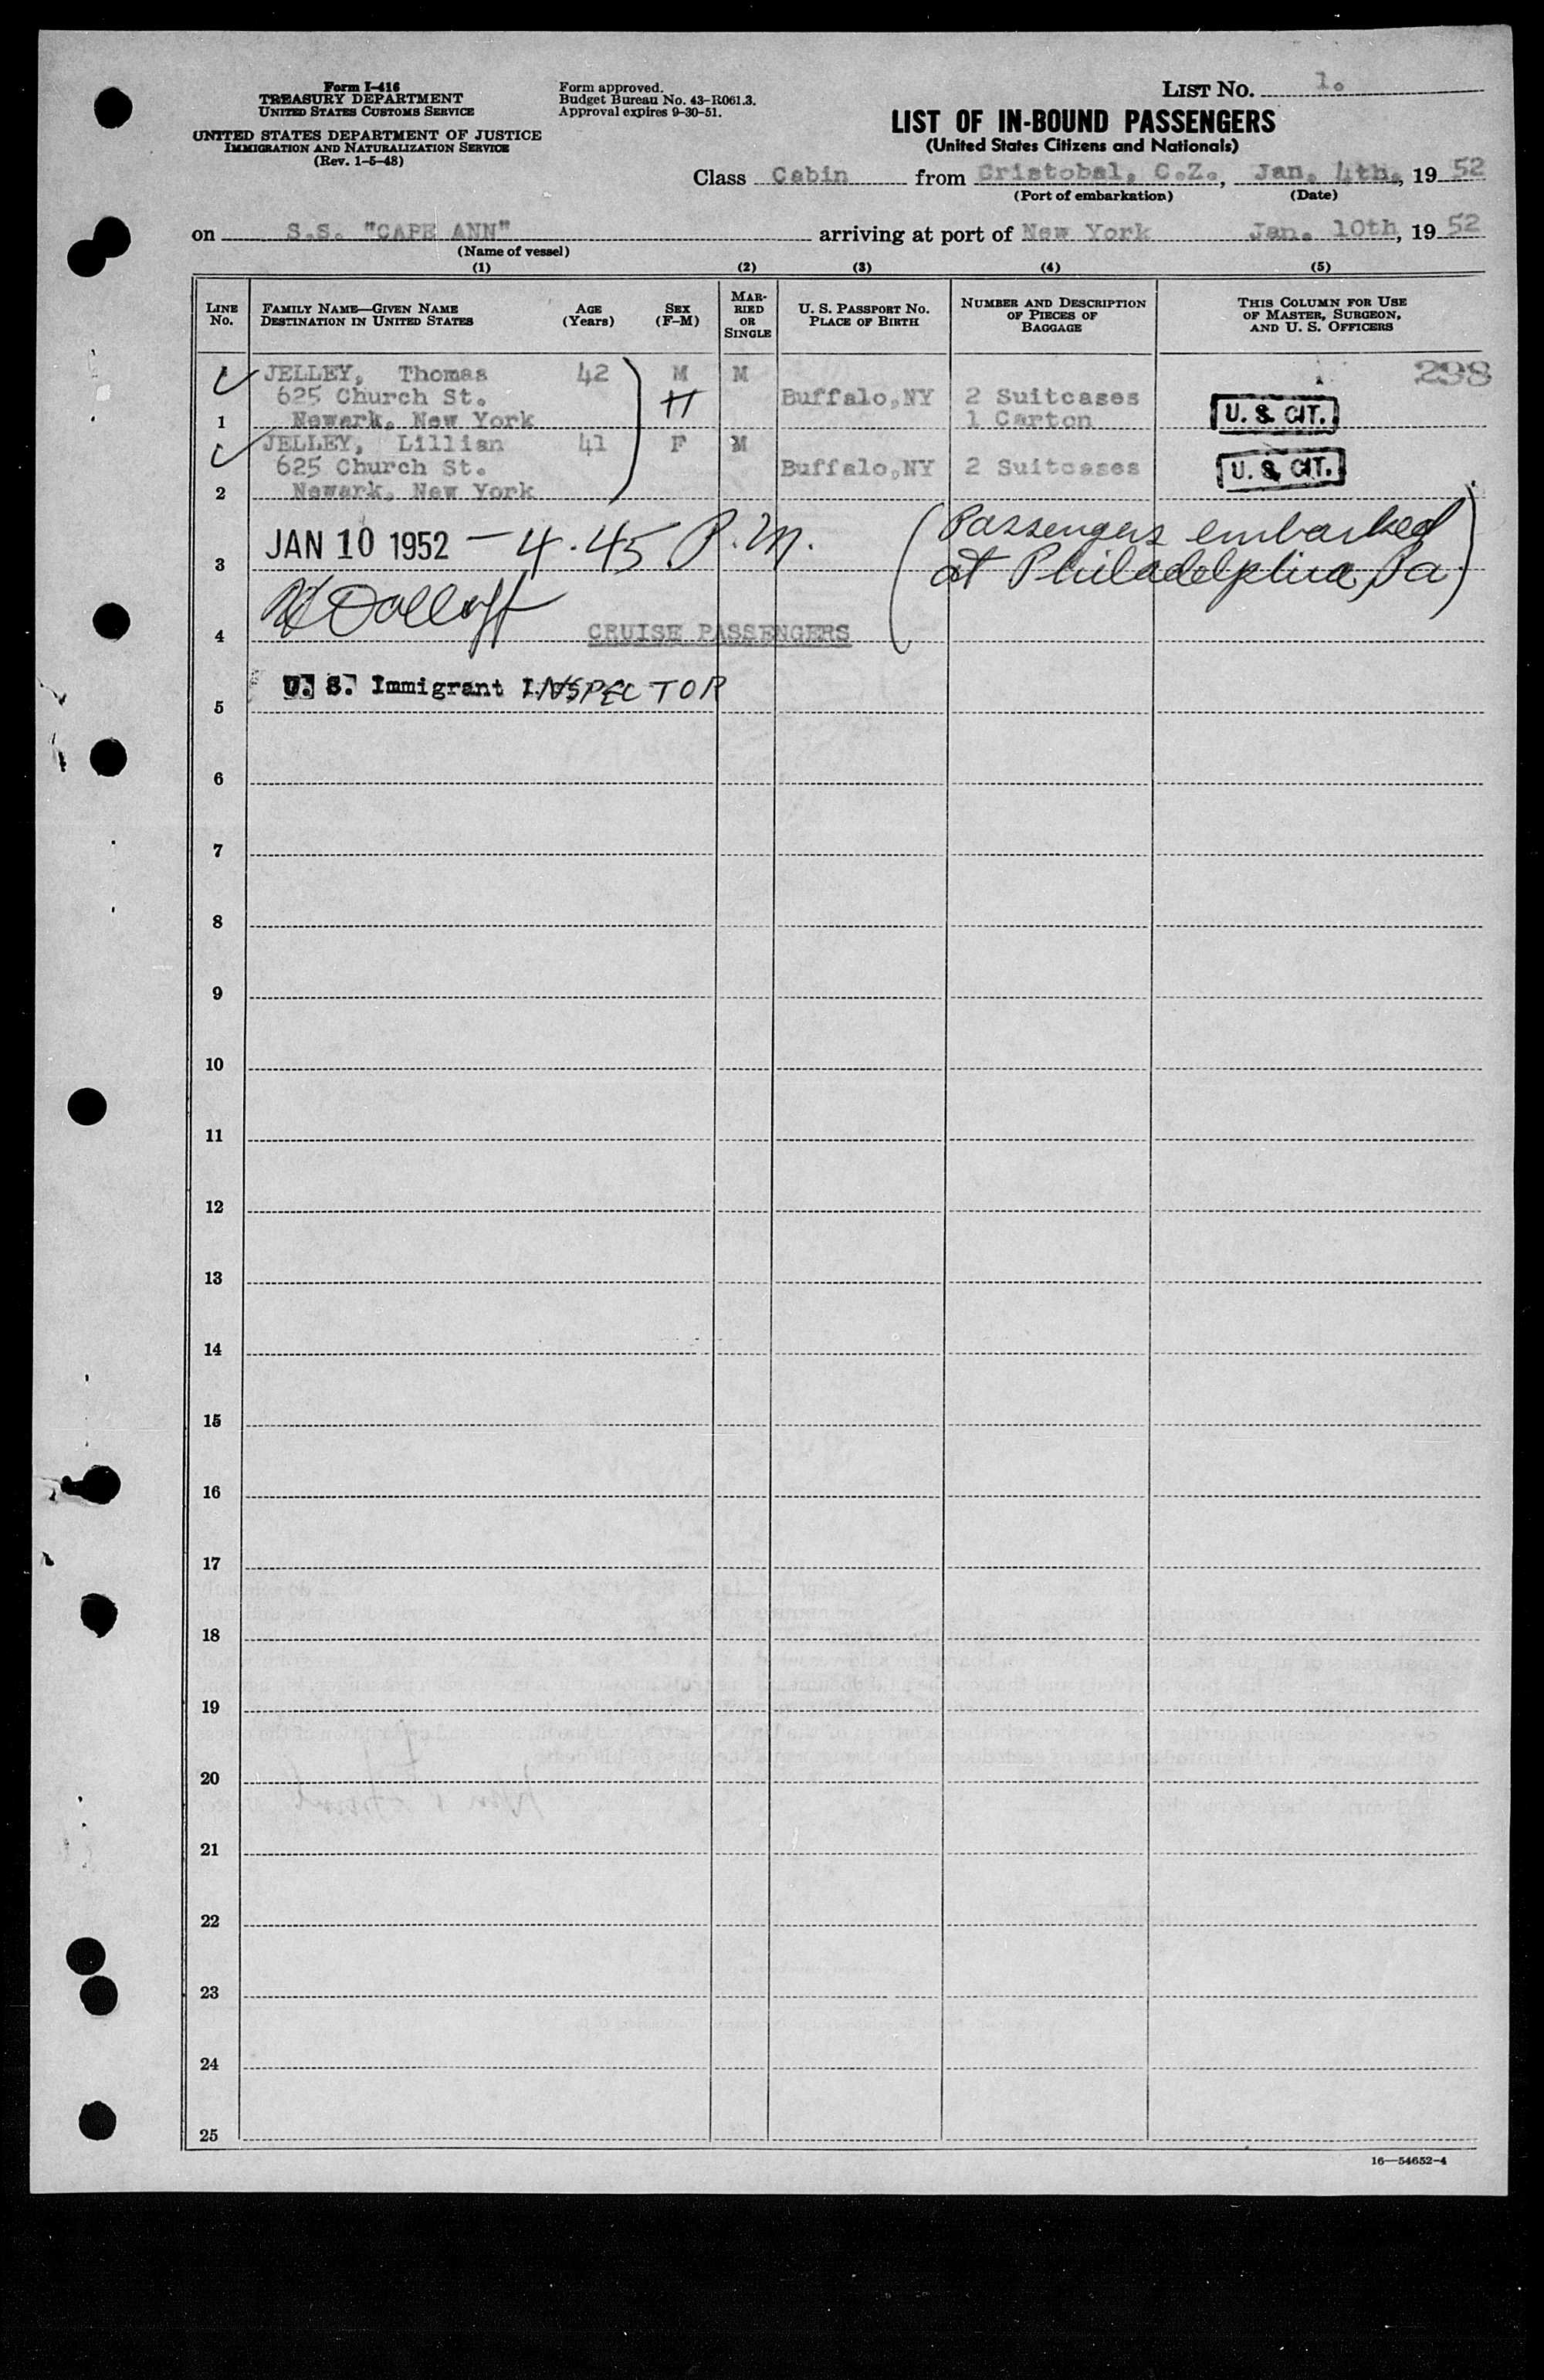 Form I-416
TREASURY DEPARTMENT
UNITED STATES CUSTOMS SERVICE
UNITED STATES DEPARTMENT OF JUSTICE
IMMIGRATION AND NATURALIZATION SERVICE
(Rev. 1-5-48)
Form approved.
Budget Bureau No. 43-R061.3.
Approval expires 9-30-51.
LIST No. 1.
LIST OF IN-BOUND PASSENGERS
(United States Citizens and Nationals)
Class Cabin from Cristobal, C.Z., Jan. 4th, 19 52
(Port of embarkation) (Date)
on S.S. "CAPE ANN" arriving at port of New York Jan. 10th, 19 52
(Name of vessel)
(1) (2) (3) (4) (5)
LINE No. FAMILY NAME—GIVEN NAME DESTINATION IN UNITED STATES AGE (Years) SEX (F-M) MARRIED OR SINGLE U. S. PASSPORT NO. PLACE OF BIRTH NUMBER AND DESCRIPTION OF PIECES OF BAGGAGE THIS COLUMN FOR USE OF MASTER, SURGEON, AND U. S. OFFICERS
JELLEY, Thomas 42 M M 298
625 Church St. H Buffalo,NY 2 Suitcases
1 Newark, New York 1 Carton U. S. CIT.
JELLEY, Lillian 41 F M
625 Church St. Buffalo,NY 2 Suitcases U. S. CIT.
2 Newark, New York
JAN 10 1952 — 4.45 P.M. (Passengers embarked
3 at Philadelphia, Pa)
4 CRUISE PASSENGERS
U. S. Immigrant INSPECTOR
5
6
7
8
9
10
11
12
13
14
15
16
17
18
19
20
21
22
23
24
25
16—54652-4